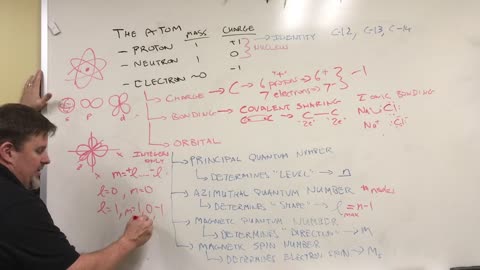 THE ATOM MASS CHARGE
- PROTON 1 +1
- NEUTRON 1 0
- ELECTRON ~0 -1
IDENTITY C-12, C-13, C-14
NUCLEUS
CHARGE → C → 6 protons → 6+
7 electrons → 7-
-1
BONDING → COVALENT SHARING
C — C
2e- 2e-
IONIC BONDING
Na Cl
Na+ :Cl:
ORBITAL
s p d
INTEGERS ONLY
l=0, m=0
l=1, m=1,0,-1
PRINCIPAL QUANTUM NUMBER
DETERMINES "LEVEL" → n
AZIMUTHAL QUANTUM NUMBER # nodes
DETERMINES "SHAPE" → l max = n-1
MAGNETIC QUANTUM NUMBER
DETERMINES "DIRECTION" → m
MAGNETIC SPIN NUMBER
DETERMINES ELECTRON SPIN → Ms